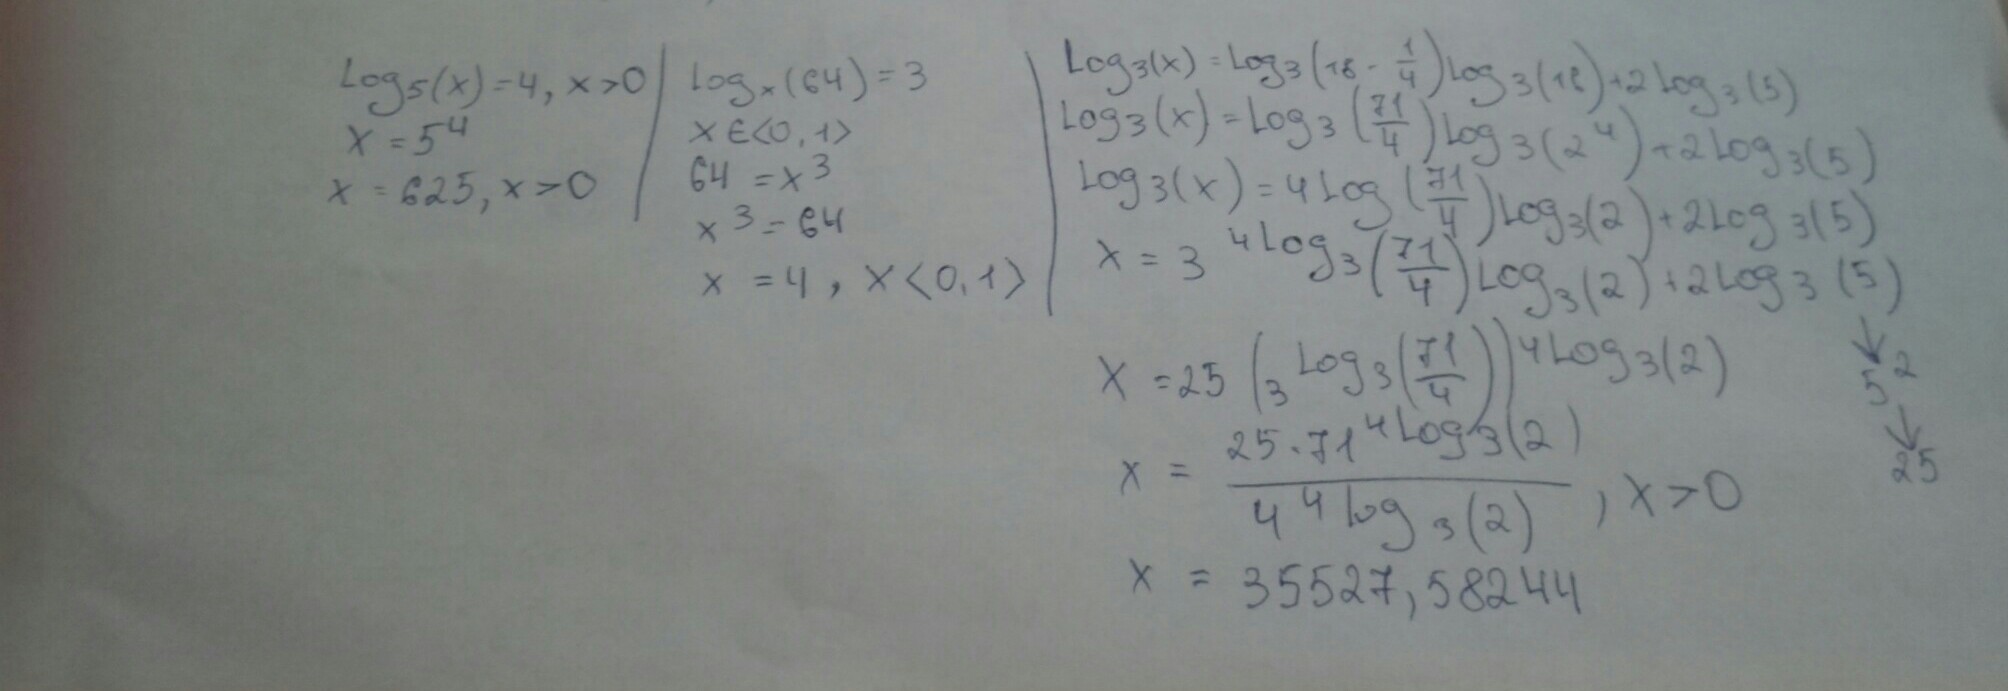 Log₅(x) = 4, x>0
x = 5⁴
x = 625, x>0
logₓ(64) = 3
x∈<0,1>
64 = x³
x³ = 64
x = 4, x<0,1>
Log₃(x) = Log₃(18 - 1/4) Log₃(18) + 2 Log₃(5)
Log₃(x) = Log₃(71/4) Log₃(2⁴) + 2 Log₃(5)
Log₃(x) = 4 Log(71/4) Log₃(2) + 2 Log₃(5)
x = 3^(4 Log₃(71/4) Log₃(2) + 2 Log₃(5))
↓
5²
↓
25
x = 25 (3^(Log₃(71/4)))^(4 Log₃(2))
x = 25·71^(4 Log₃(2)) / 4^(4 log₃(2)), x>0
x = 35527,58244